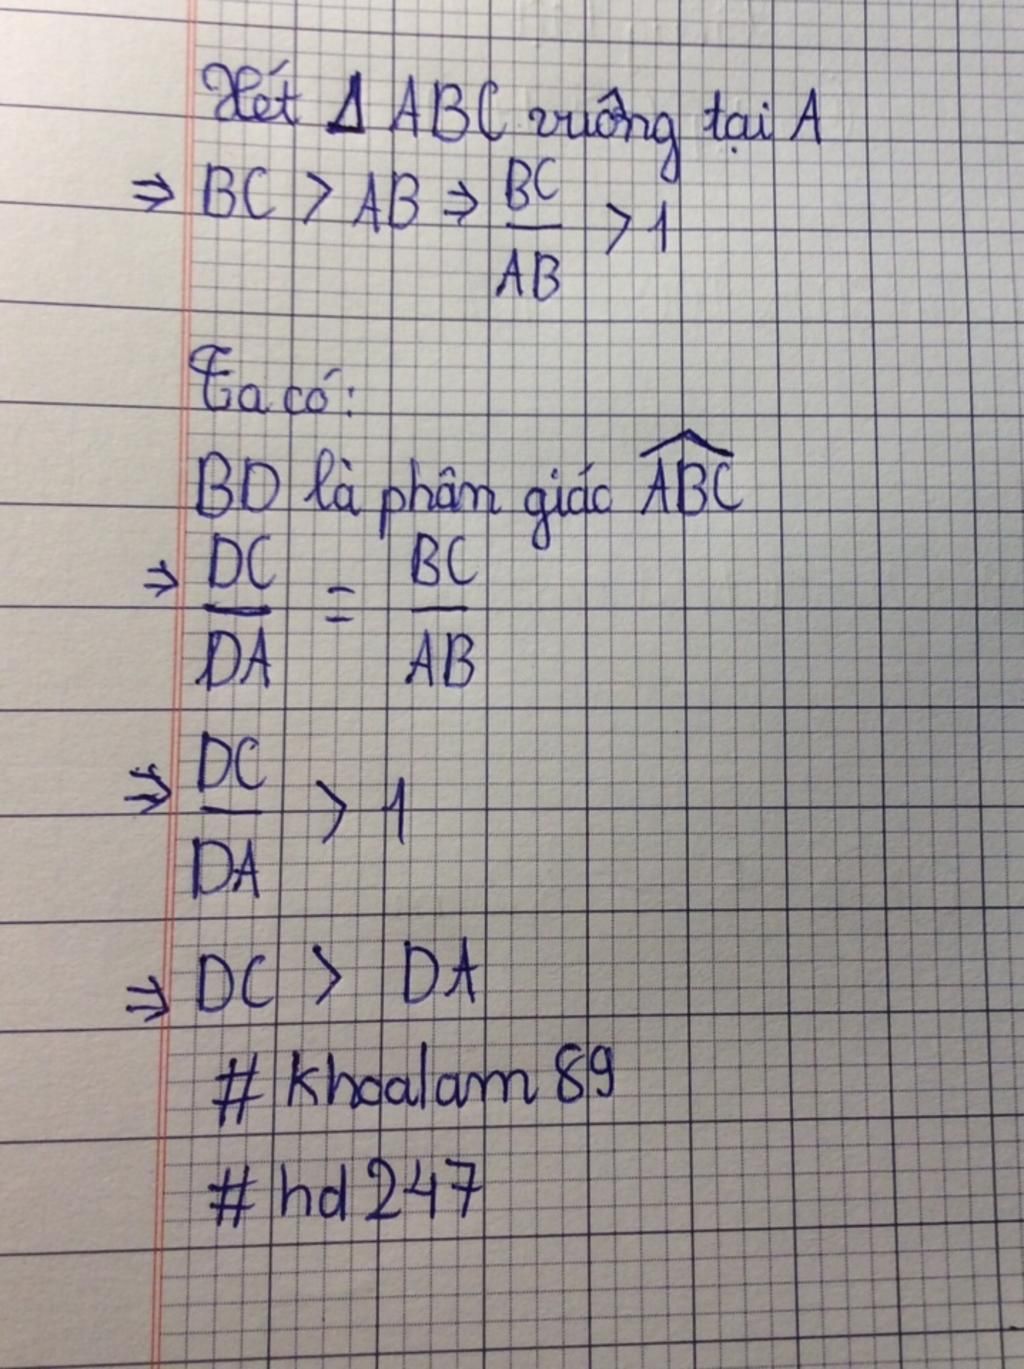 Xét Δ ABC vuông tại A
⇒ BC > AB ⇒ BC/AB > 1
Ta có:
BD là phân giác \widehat{ABC}
⇒ DC/DA = BC/AB
⇒ DC/DA > 1
⇒ DC > DA
# khoalam89
# hd247